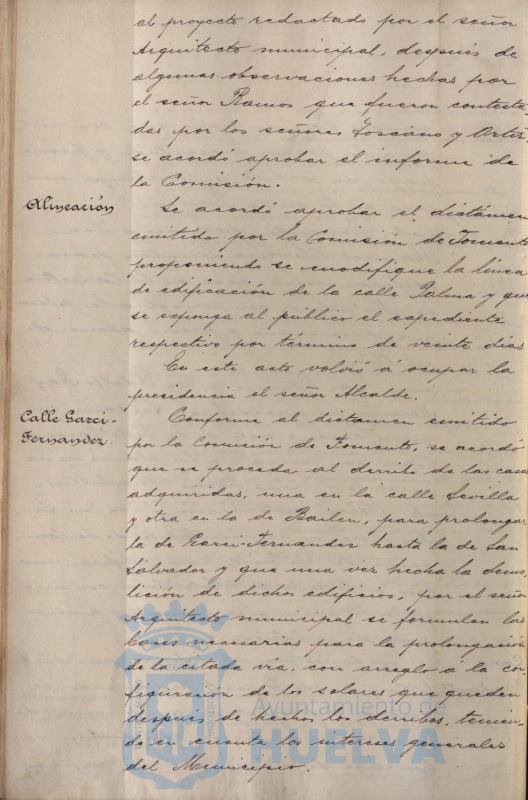 al proyecto redactado por el señor
Arquitecto municipal, después de
algunas observaciones hechas por
el señor Ramos que fueron contesta-
das por los señores Toscano y Ortiz
se acordó aprobar el informe de
la Comisión.
Alineación
Se acordó aprobar el dictámen
emitido por la Comisión de Fomento
proponiendo se modifique la línea
de edificación de la calle Palma y que
se exponga al público el expediente
respectivo por término de veinte días
En este acto volvió á ocupar la
presidencia el señor Alcalde.
Calle Garci-
Fernandez.
Conforme al dictamen emitido
por la Comisión de Fomento, se acordó
que se proceda al derribo de las casas
adquiridas, una en la calle Sevilla
y otra en la de Bailen, para prolongar
la de Garci-Fernandez hasta la de San
Salvador y que una vez hecha la demo-
lición de dichos edificios, por el señor
Arquitecto municipal se formulen las
bases necesarias para la prolongación
de la citada vía, con arreglo á la con-
figuración de los solares que queden
después de hechos los derribos, tenien-
do en cuenta los intereses generales
del Municipio.
Ayuntamiento de
HUELVA